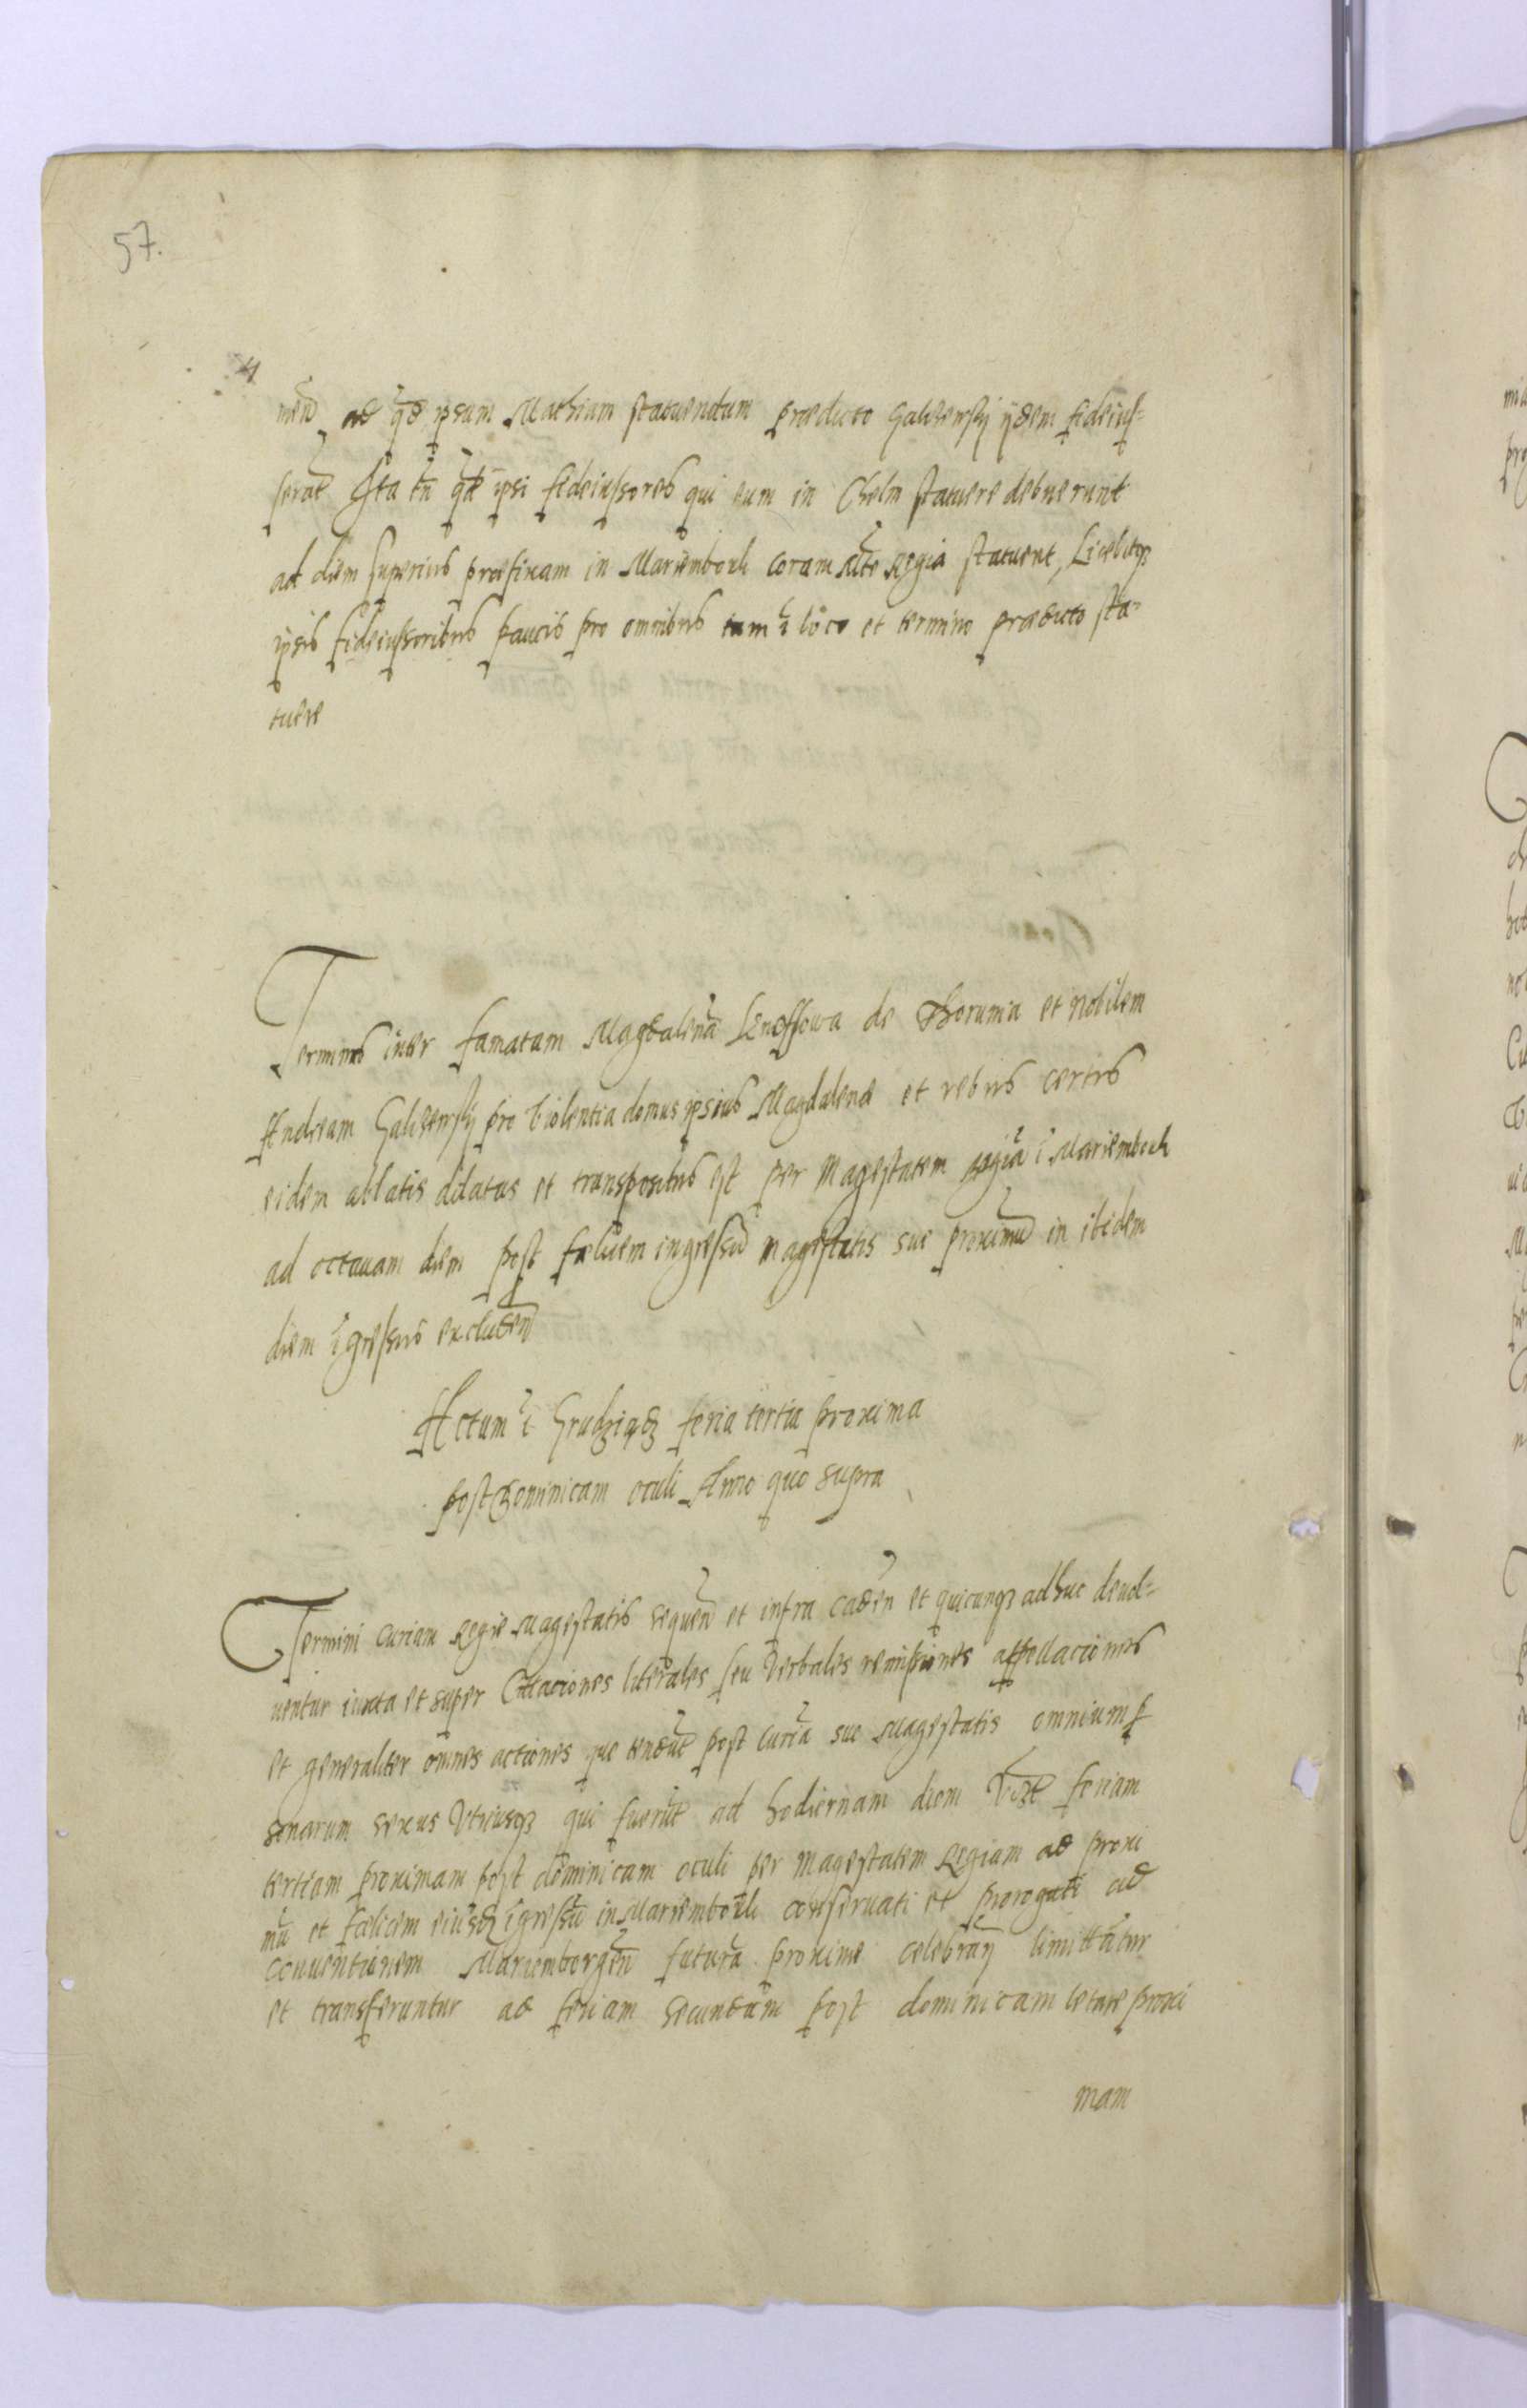 57.
4
meñ ad qđ ipsum Mathiam statuendum prædicto Galczewsky ydem fideius-
serāt Ita tñ qđ ipsi fideiussores qui eum in Chelm statuere debuerunt
ad diem superius præfixam in Mariembork coram Mte Regia statuent, Licebitqȝ
ipsis fideiussoribus paucis pro omnibus tam ī loco et termino prædicto sta-
tuere
Terminus inter famatam Magdalenā de Thorunia et nobilem
Andream Galczewsky pro violentia domus ipsius Magdalenæ et rebus certis
eidem ablatis dilatus et transpositus est per Magestatem regiā ī Mariembork
ad octauam diem post fælicem ingressū Magestatis sue proximū in ibidem
diem īgressus excludeñ
Actum ī Grudziądz feria tertia proxima
post dominicam oculi Anno quo supra
Termini curiam Regie Magestatis sequeñ et infra cadeñ et quicunqȝ adhuc deuol-
uentur iuxta et super Citaciones literales seu verbales remissiones appellaciones
et generaliter omnes actiones que tendūt post curiā sue Magestatis omnium p
sonarum sexus vtriusqȝ qui fuerūt ad hodiernam diem vidȝt feriam
tertiam proximam post dominicam oculi per Magestatem Regiam ad proxi
mū et fælicem eiusdȝ īgressū in Mariembork conseruati et prorogati ad
conuentionem Mariemborgeñ futurā proxime celebrañ limittātur
et transferuntur ad feriam secundam post dominicam letare proxi
mam